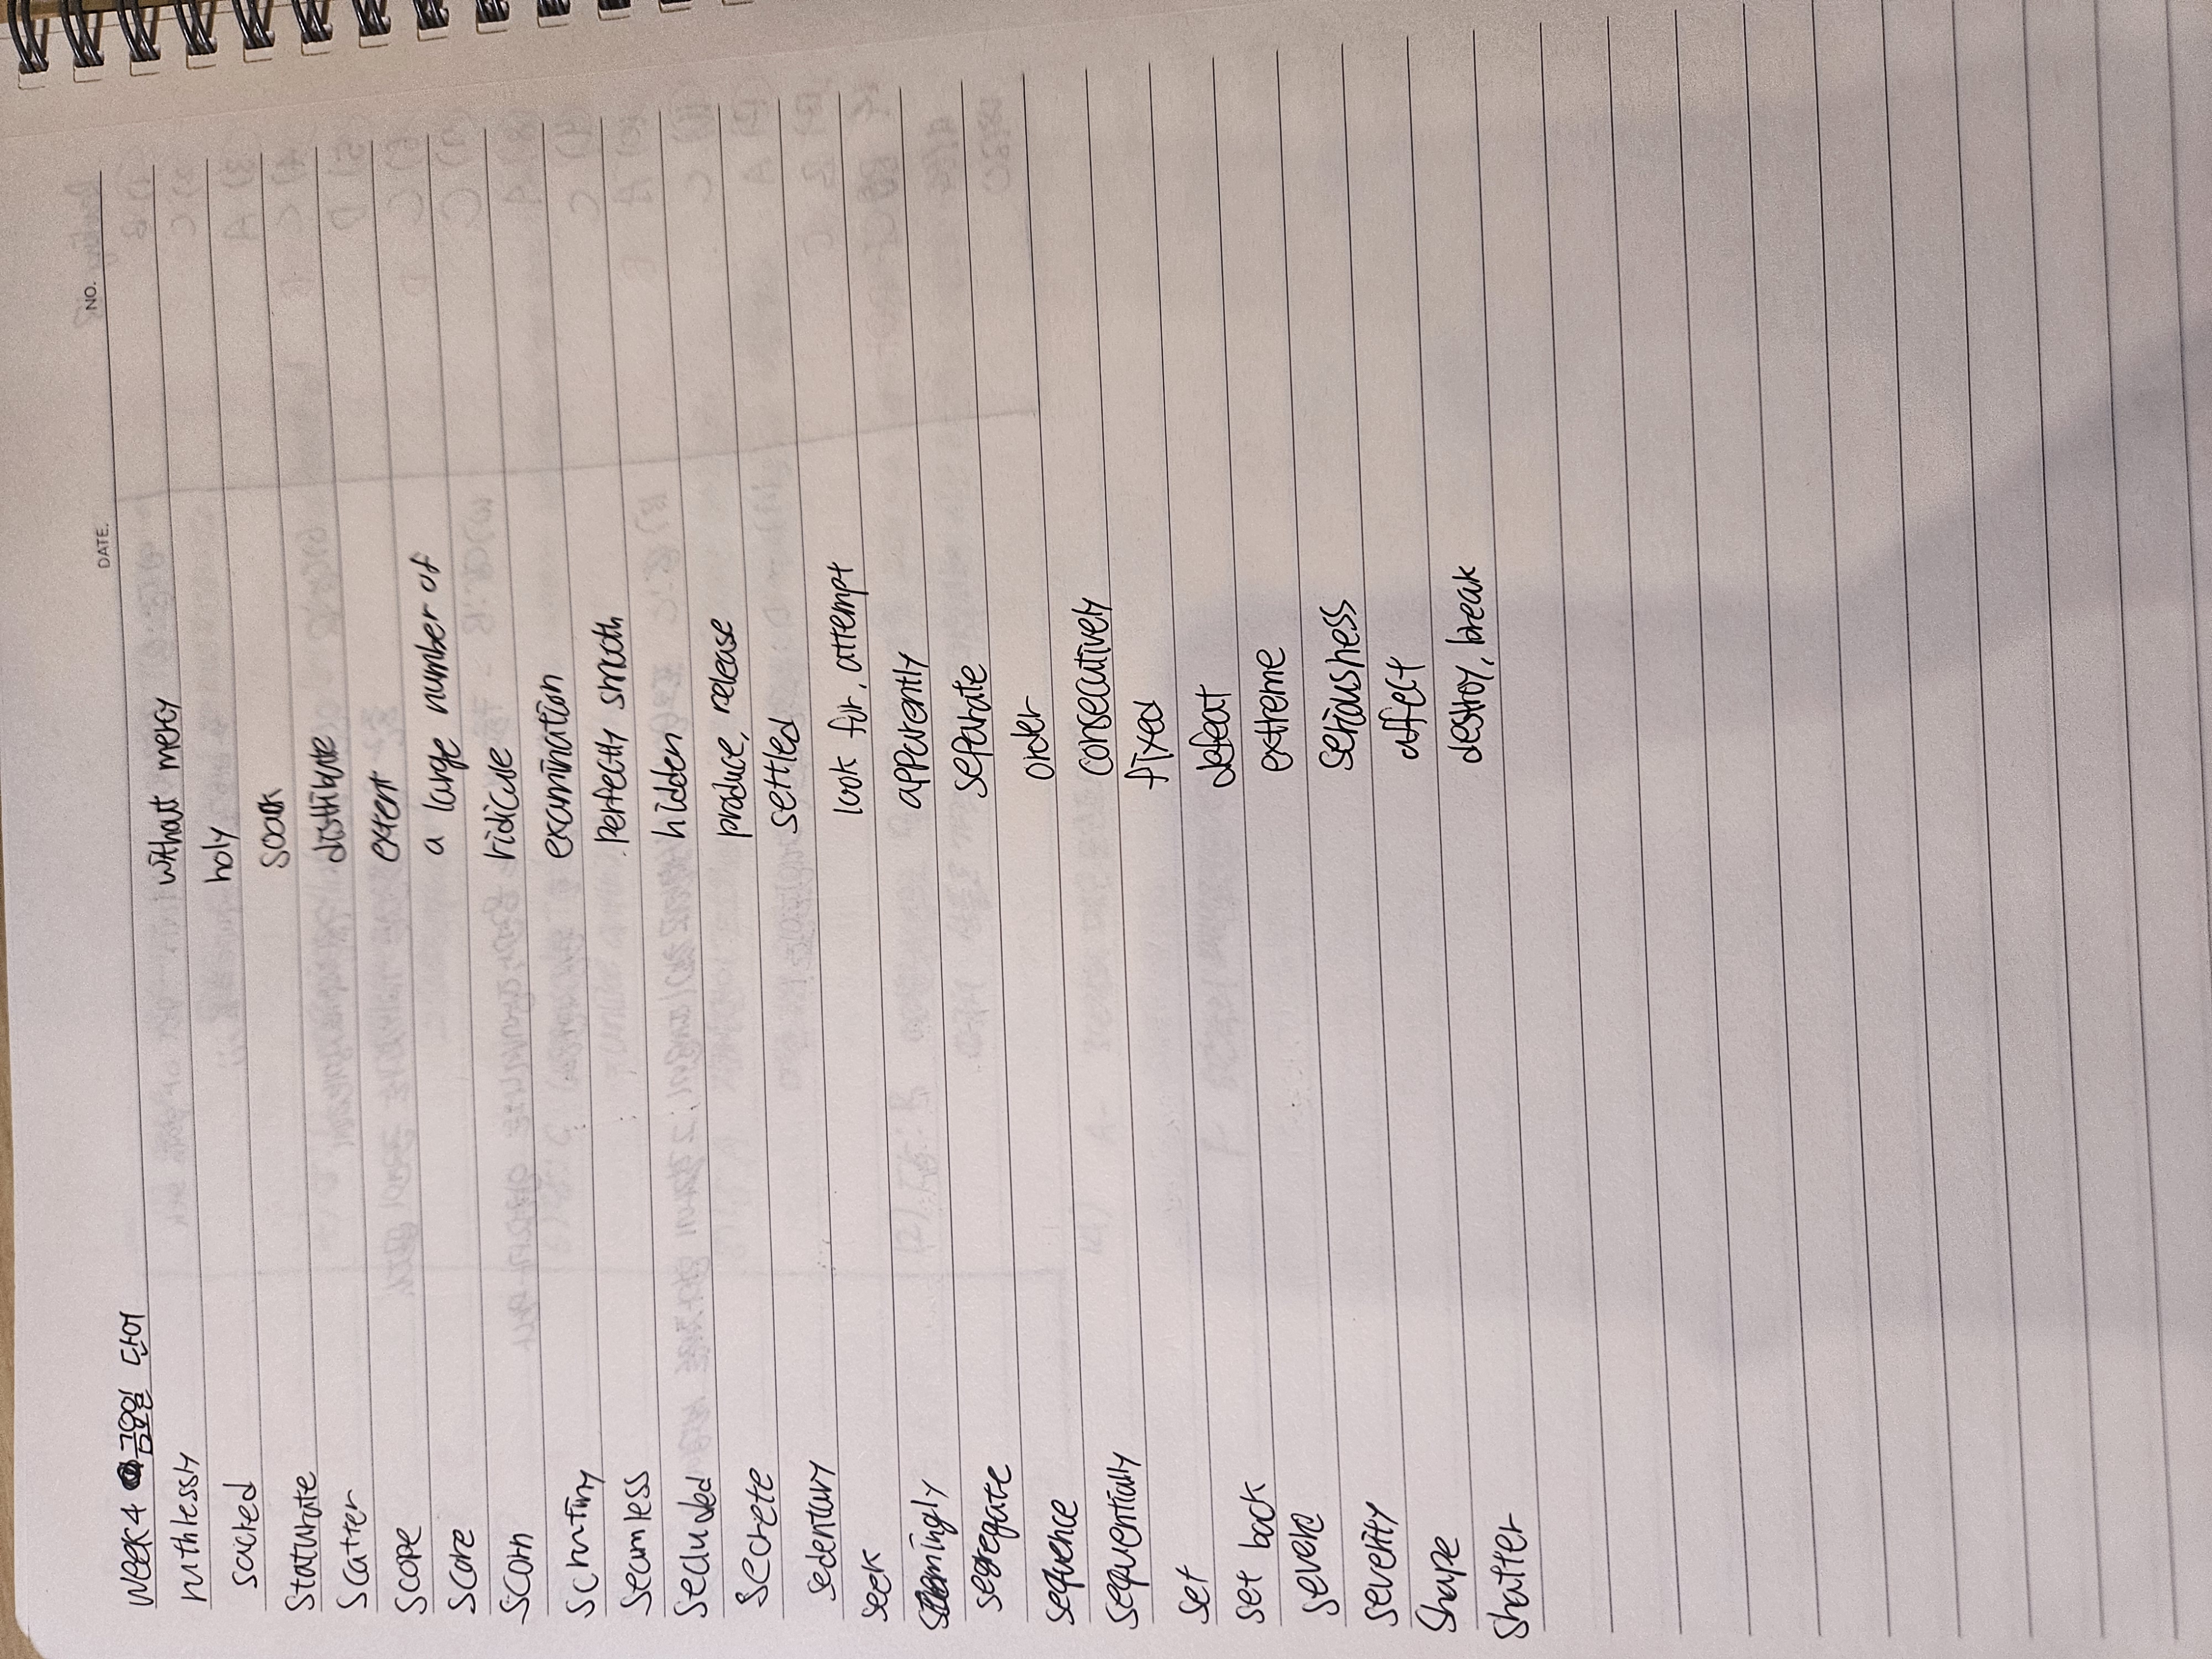 NO.
DATE.
WEEK 4 금요일 단어
ruthlessly without mercy
sacred holy
staturate soak
scatter distribute
scope extent
score a large number of
scorn ridicule
scrutiny examination
seamless perfectly smooth
secluded hidden
secrete produce, release
sedentary settled
seek look for, attempt
seemingly apparently
segregate separate
sequence order
sequentially consecutively
set fixed
set back defeat
severe extreme
severity seriousness
shape affect
shatter destroy, break